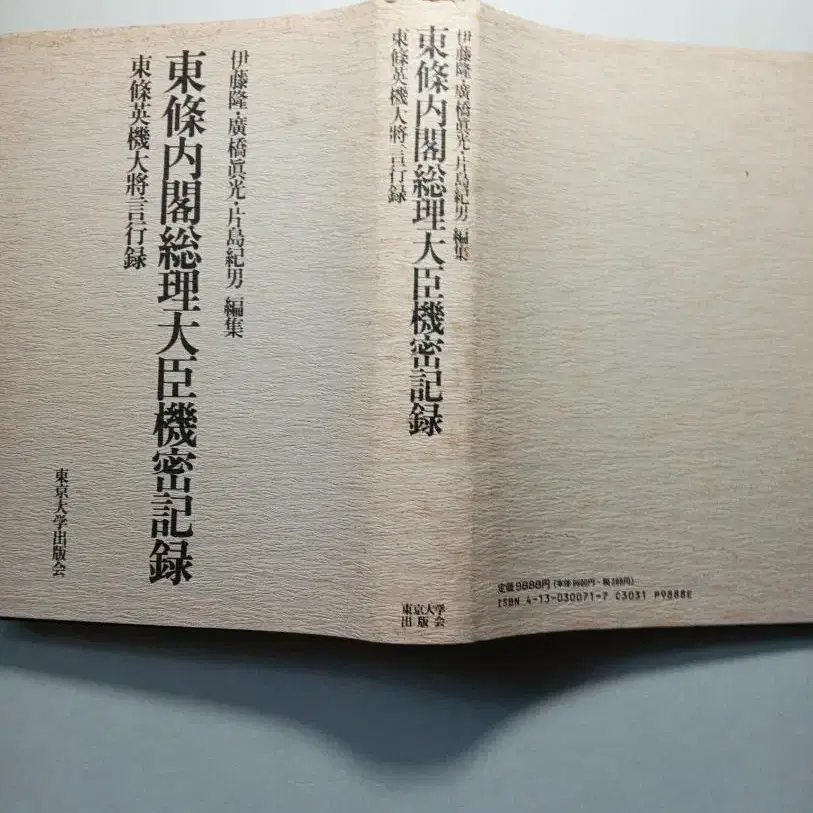 伊藤隆・廣橋眞光・片島紀男 編集
東條内閣総理大臣機密記録
東條英機大將言行録
東京大学出版会
伊藤隆・廣橋眞光・片島紀男 編集
東條内閣総理大臣機密記録
東條英機大將言行録
東京大学
出版会
定価9888円 (本体9600円・税288円)
ISBN 4-13-030071-7 C3031 P9888E